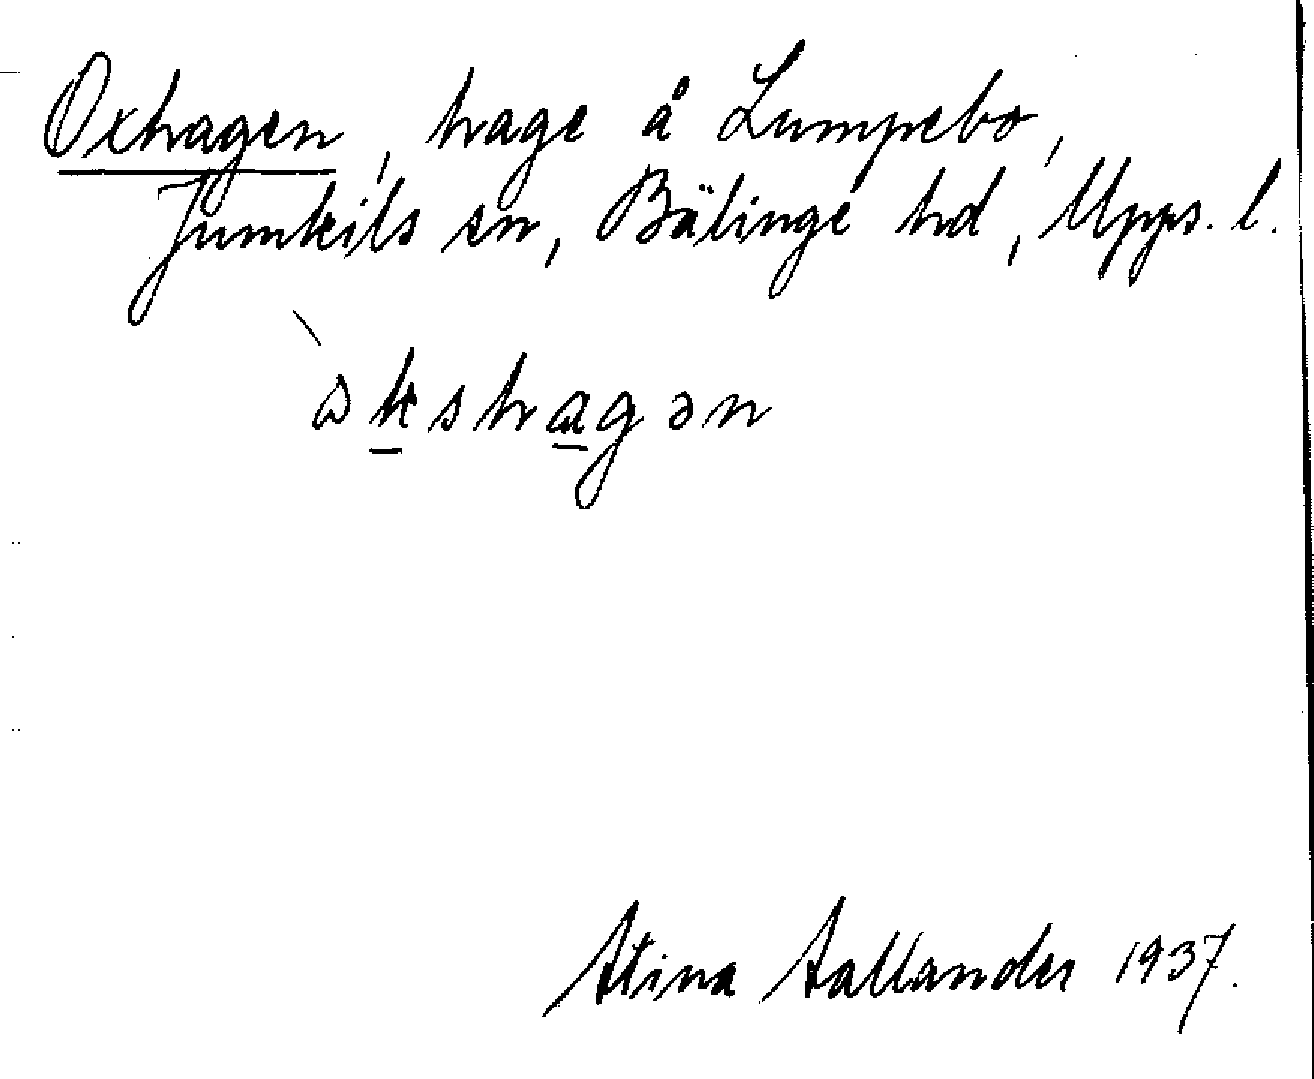 Oxhagen, hage å Lumpebo,
Jumkils sn, Bälinge hd, Upps. l.
`ɷkshagən
Stina Sallander 1937.